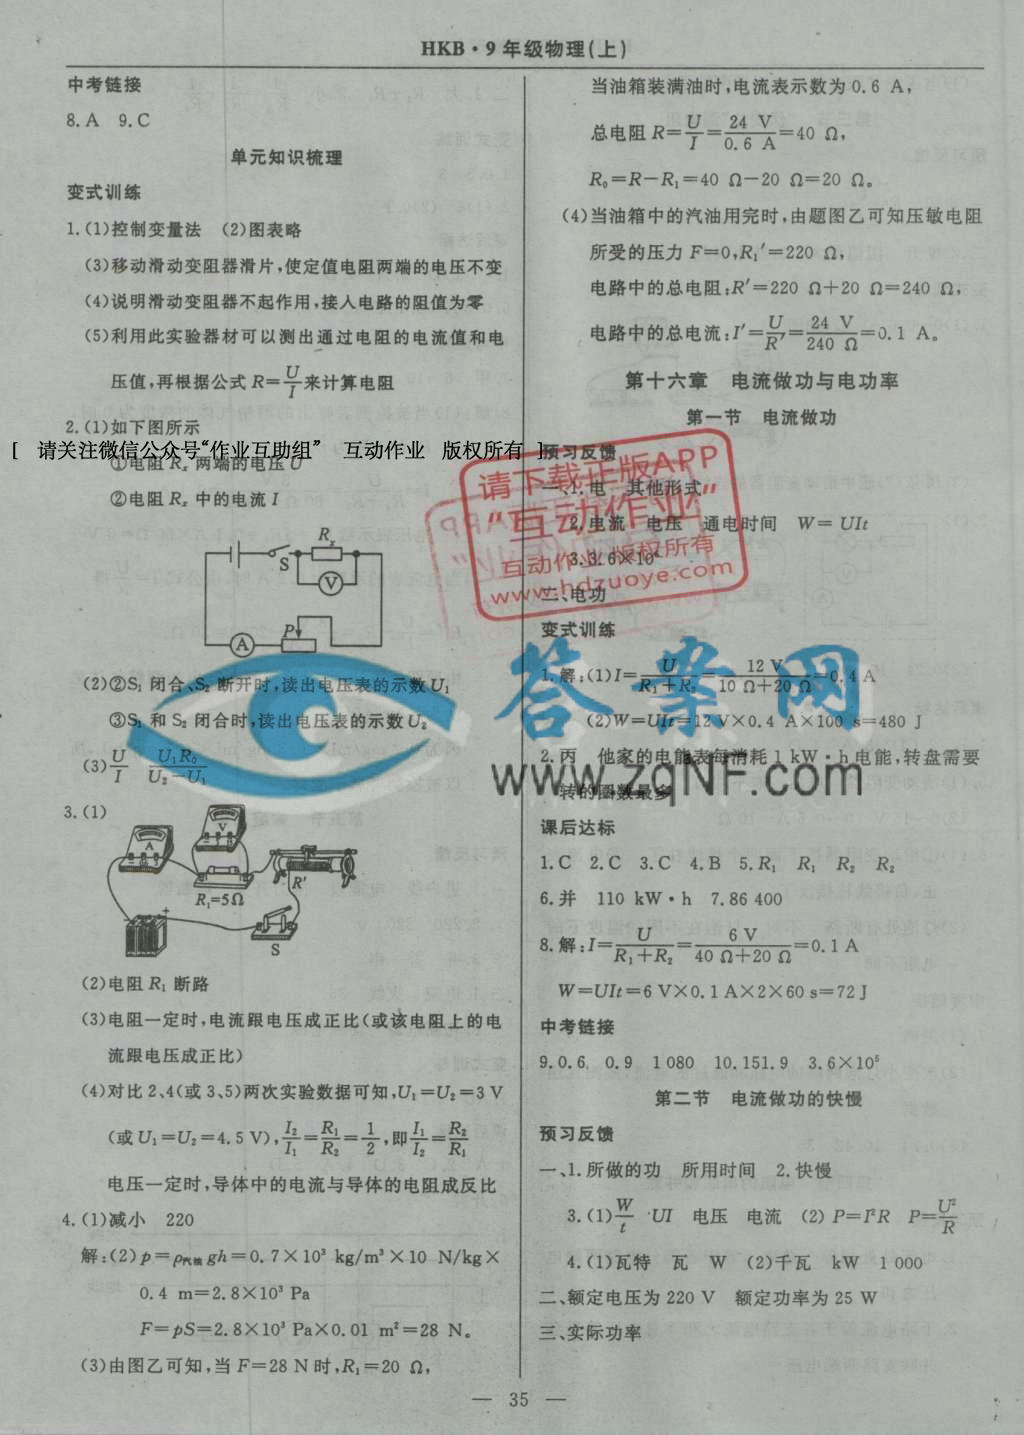 HKB·9年级物理(上)
中考链接
8.A 9.C
单元知识梳理
变式训练
1.(1)控制变量法 (2)图表略
(3)移动滑动变阻器滑片,使定值电阻两端的电压不变
(4)说明滑动变阻器不起作用,接入电路的阻值为零
(5)利用此实验器材可以测出通过电阻的电流值和电
压值,再根据公式 R=U/I来计算电阻
2.(1)如下图所示
[ 请关注微信公众号“作业互助组” 互动作业 版权所有 ]
①电阻 Rx 两端的电压 U
②电阻 Rx 中的电流 I
S Rx V
A P
(2)②S₁ 闭合、S₂ 断开时,读出电压表的示数 U₁
③S₁ 和 S₂ 闭合时,读出电压表的示数 U₂
(3)U/I U₁R₀/(U₂-U₁)
3.(1)
A V
R₁=5Ω R′
S
(2)电阻 R₁ 断路
(3)电阻一定时,电流跟电压成正比(或该电阻上的电
流跟电压成正比)
(4)对比2、4(或3、5)两次实验数据可知,U₁=U₂=3 V
(或 U₁=U₂=4.5 V),I₂/I₁=R₁/R₂=1/2,即I₁/I₂=R₂/R₁
电压一定时,导体中的电流与导体的电阻成反比
4.(1)减小 220
解:(2)p=ρ汽油gh=0.7×10³ kg/m³×10 N/kg×
0.4 m=2.8×10³ Pa
F=pS=2.8×10³ Pa×0.01 m²=28 N。
(3)由图乙可知,当 F=28 N时,R₁=20 Ω,
当油箱装满油时,电流表示数为0.6 A,
总电阻 R=U/I=24 V/0.6 A=40 Ω,
R₀=R-R₁=40 Ω-20 Ω=20 Ω。
(4)当油箱中的汽油用完时,由题图乙可知压敏电阻
所受的压力 F=0,R₁′=220 Ω,
电路中的总电阻:R′=220 Ω+20 Ω=240 Ω,
电路中的总电流:I′=U/R′=24 V/240 Ω=0.1 A。
第十六章 电流做功与电功率
第一节 电流做功
预习反馈
一、1.电 其他形式
2.电流 电压 通电时间 W=UIt
3.3.6×10⁶
二、电功
请下载正版APP
“互动作业”
互动作业 版权所有
www.hdzuoye.com
变式训练
1.解:(1)I=U/(R₁+R₂)=12 V/(10 Ω+20 Ω)=0.4 A
(2)W=UIt=12 V×0.4 A×100 s=480 J
2.丙 他家的电能表每消耗1 kW·h电能,转盘需要
转的圈数最多
答案网
www.zqNF.com
课后达标
1.C 2.C 3.C 4.B 5.R₁ R₁ R₂ R₂
6.并 110 kW·h 7.86 400
8.解:I=U/(R₁+R₂)=6 V/(40 Ω+20 Ω)=0.1 A
W=UIt=6 V×0.1 A×2×60 s=72 J
中考链接
9.0.6 0.9 1 080 10.151.9 3.6×10⁵
第二节 电流做功的快慢
预习反馈
一、1.所做的功 所用时间 2.快慢
3.(1)W/t UI 电压 电流 (2) P=I²R P=U²/R
4.(1)瓦特 瓦 W (2)千瓦 kW 1 000
二、额定电压为220 V 额定功率为25 W
三、实际功率
— 35 —